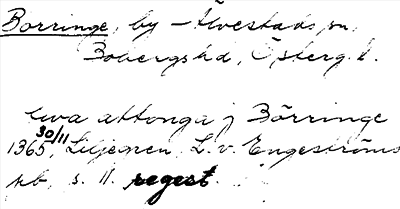 Borringe, by – Alvestads sn,
Bobergshd, Österg. l.
twa attonga j Börringe
1365 30/11, Liljegren, L. v. Engeströms
s. 11. regest.